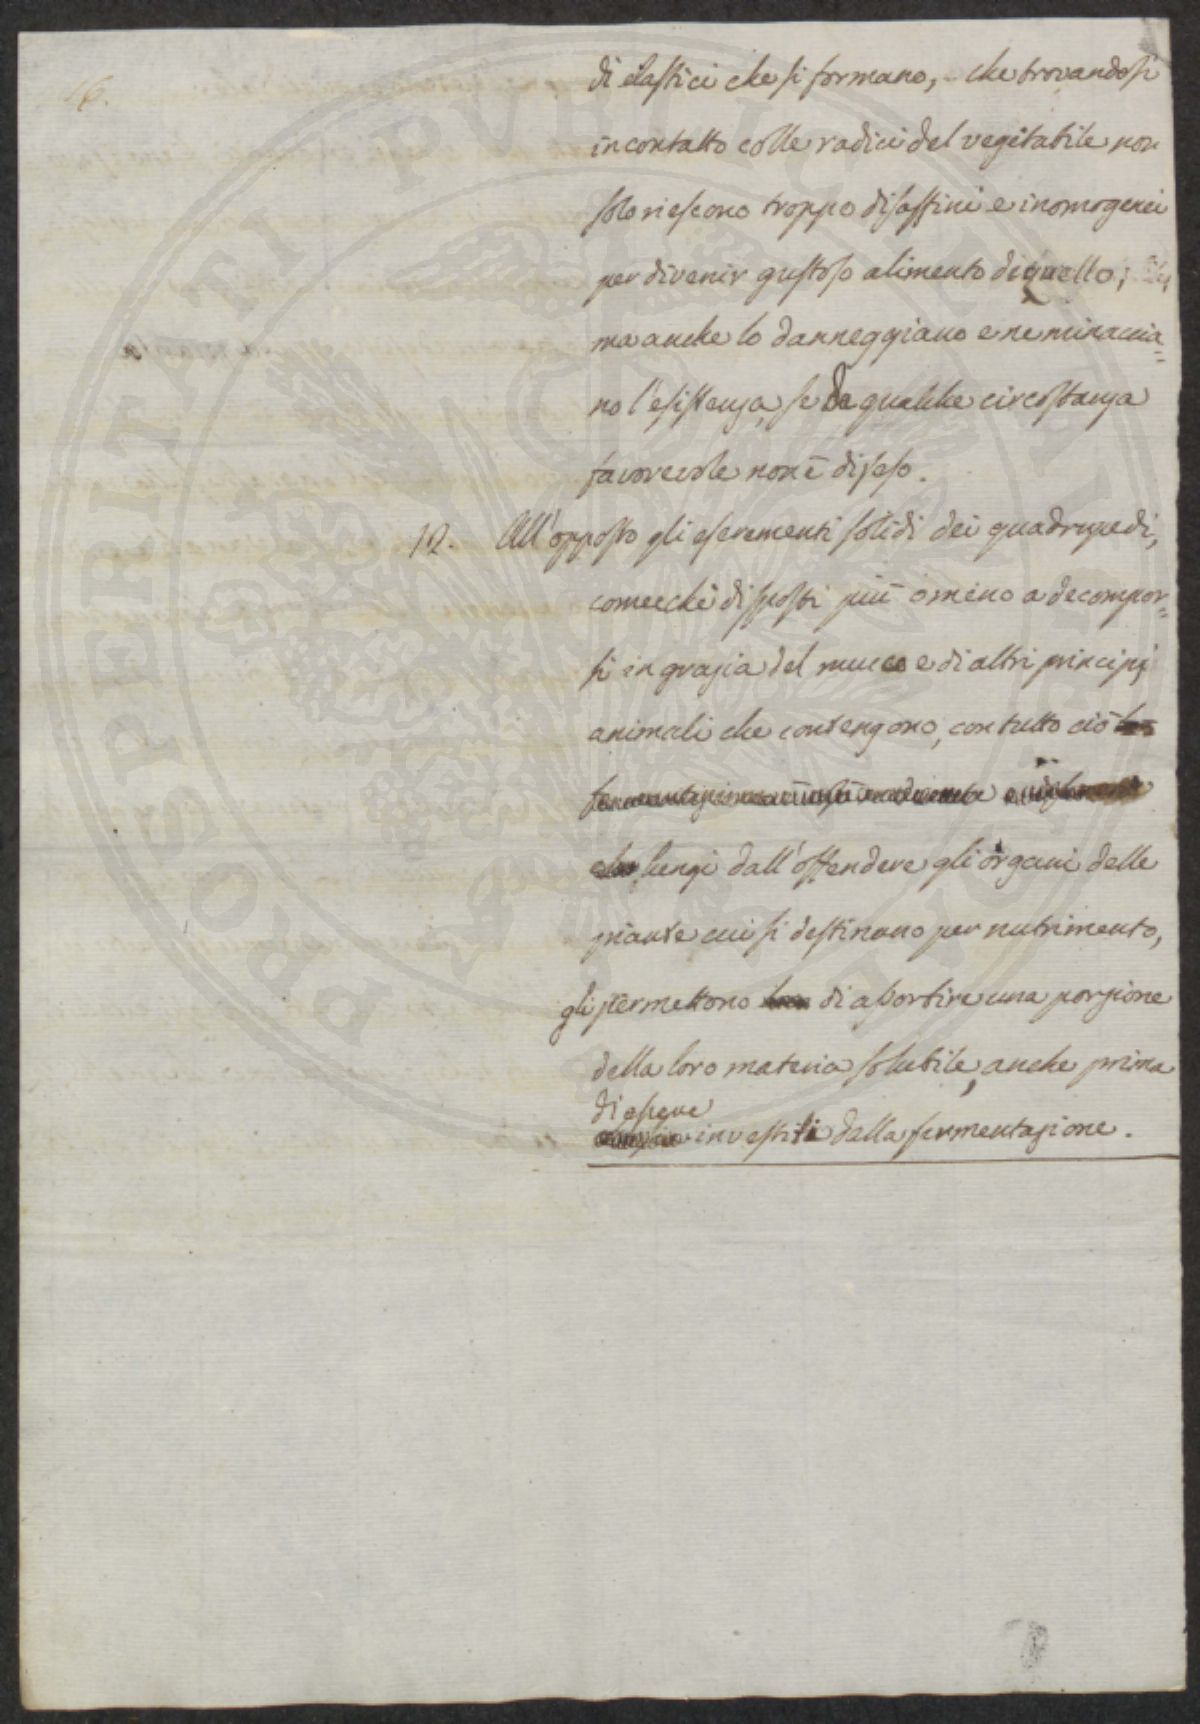 di elastici che si formano, che trovandosi
in contatto colle radici del vegitabile non
solo riescono troppo disaffini e inomogenei
per divenir gustoso alimento di quello;
ma anche lo danneggiano e ne minaccia=
no l'esistenza, se da qualche circostanza
favorevole non è difeso.
12. All'opposto gli escrementi solidi dei quadrupedi,
comecchè disposti più o meno a decompor=
si in grazia del muco e di altri principj
animali che contengono, con tutto ciò
lungi dall'offendere gli organi delle
piante cui si destinano per nutrimento,
gli permettono di assorbire una porzione
della loro materia solubile, anche prima
di essere
investiti dalla fermentazione.
PROSPERITATI PVBLICAE